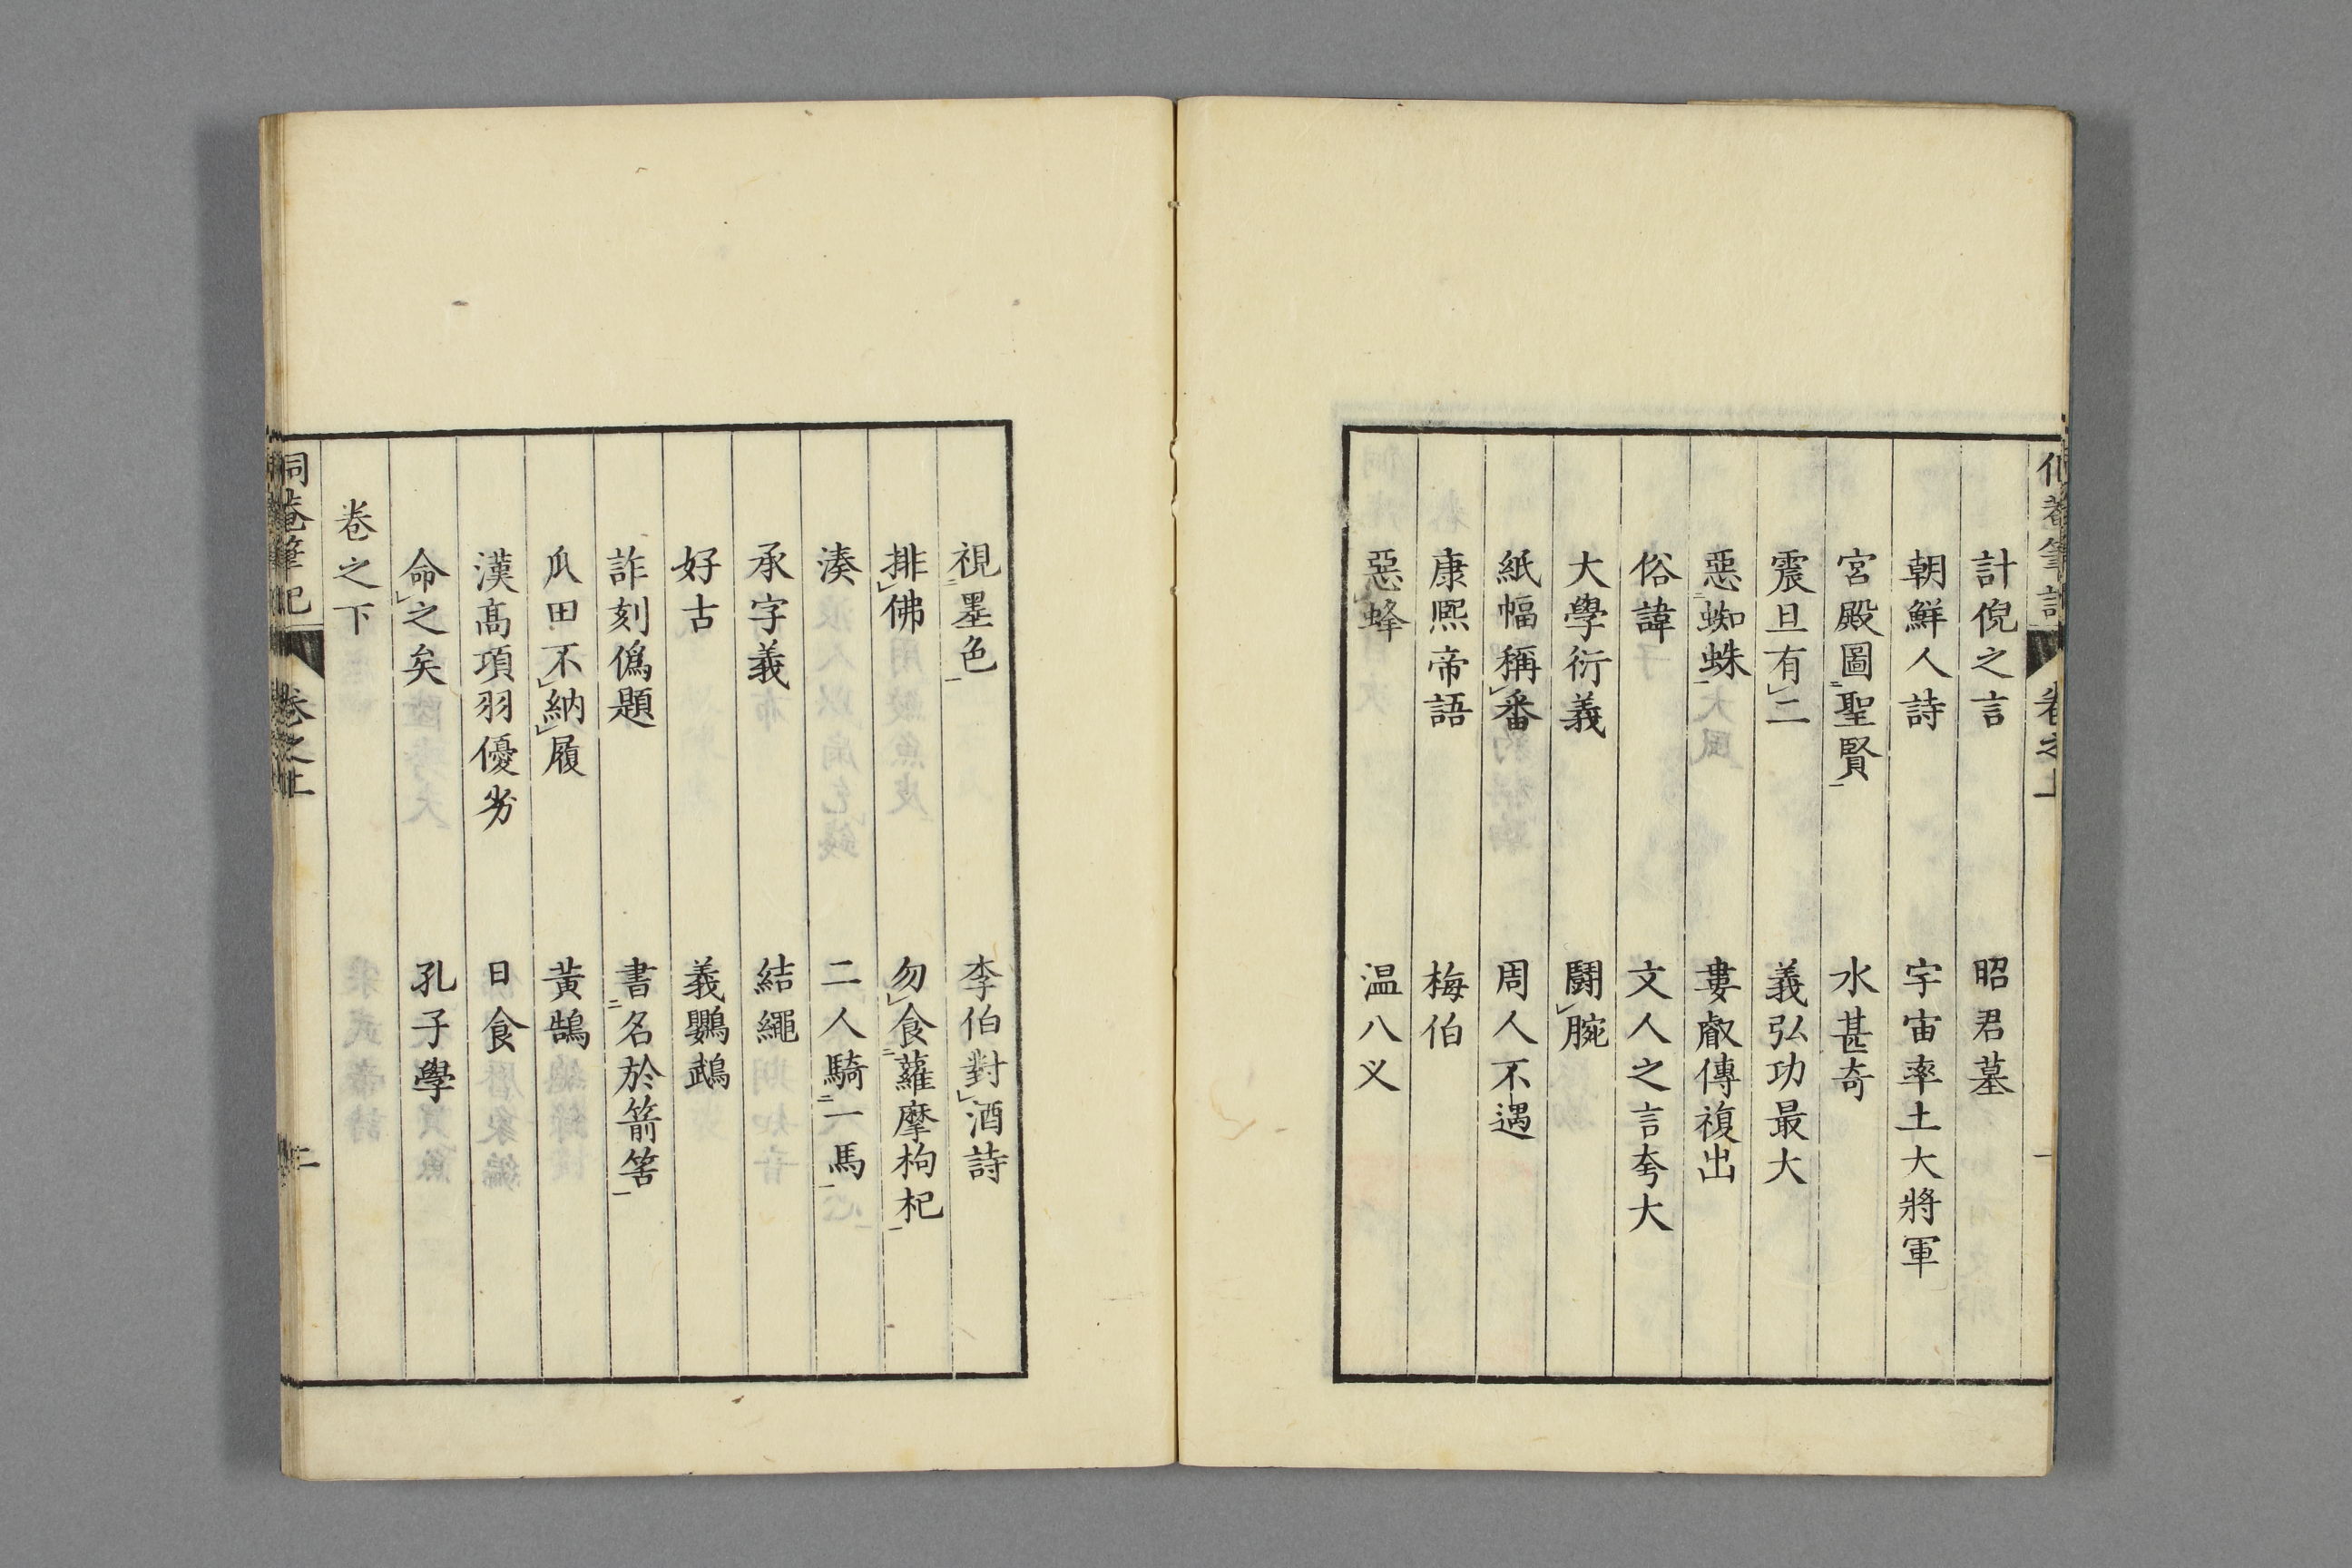 計倪之言 昭君墓
朝鮮人詩 宇宙率土大將軍
宮殿圖聖賢 水甚奇
震旦有二 義弘功最大
惡蜘蛛 婁叡傳複出
俗諱 文人之言夸大
大學衍義 鬪腕
紙幅稱番 周人不遇
康熙帝語 梅伯
惡蜂 温八义
視墨色 李伯對酒詩
排佛 勿食蘿摩枸杞
湊 二人騎一馬
承字義 結繩
好古 義鸚鵡
詐刻僞題 書名於箭筈
瓜田不納履 黃鵠
漢高項羽優劣 日食
命之矣 孔子學
卷之下
侗菴筆記 卷之上 二